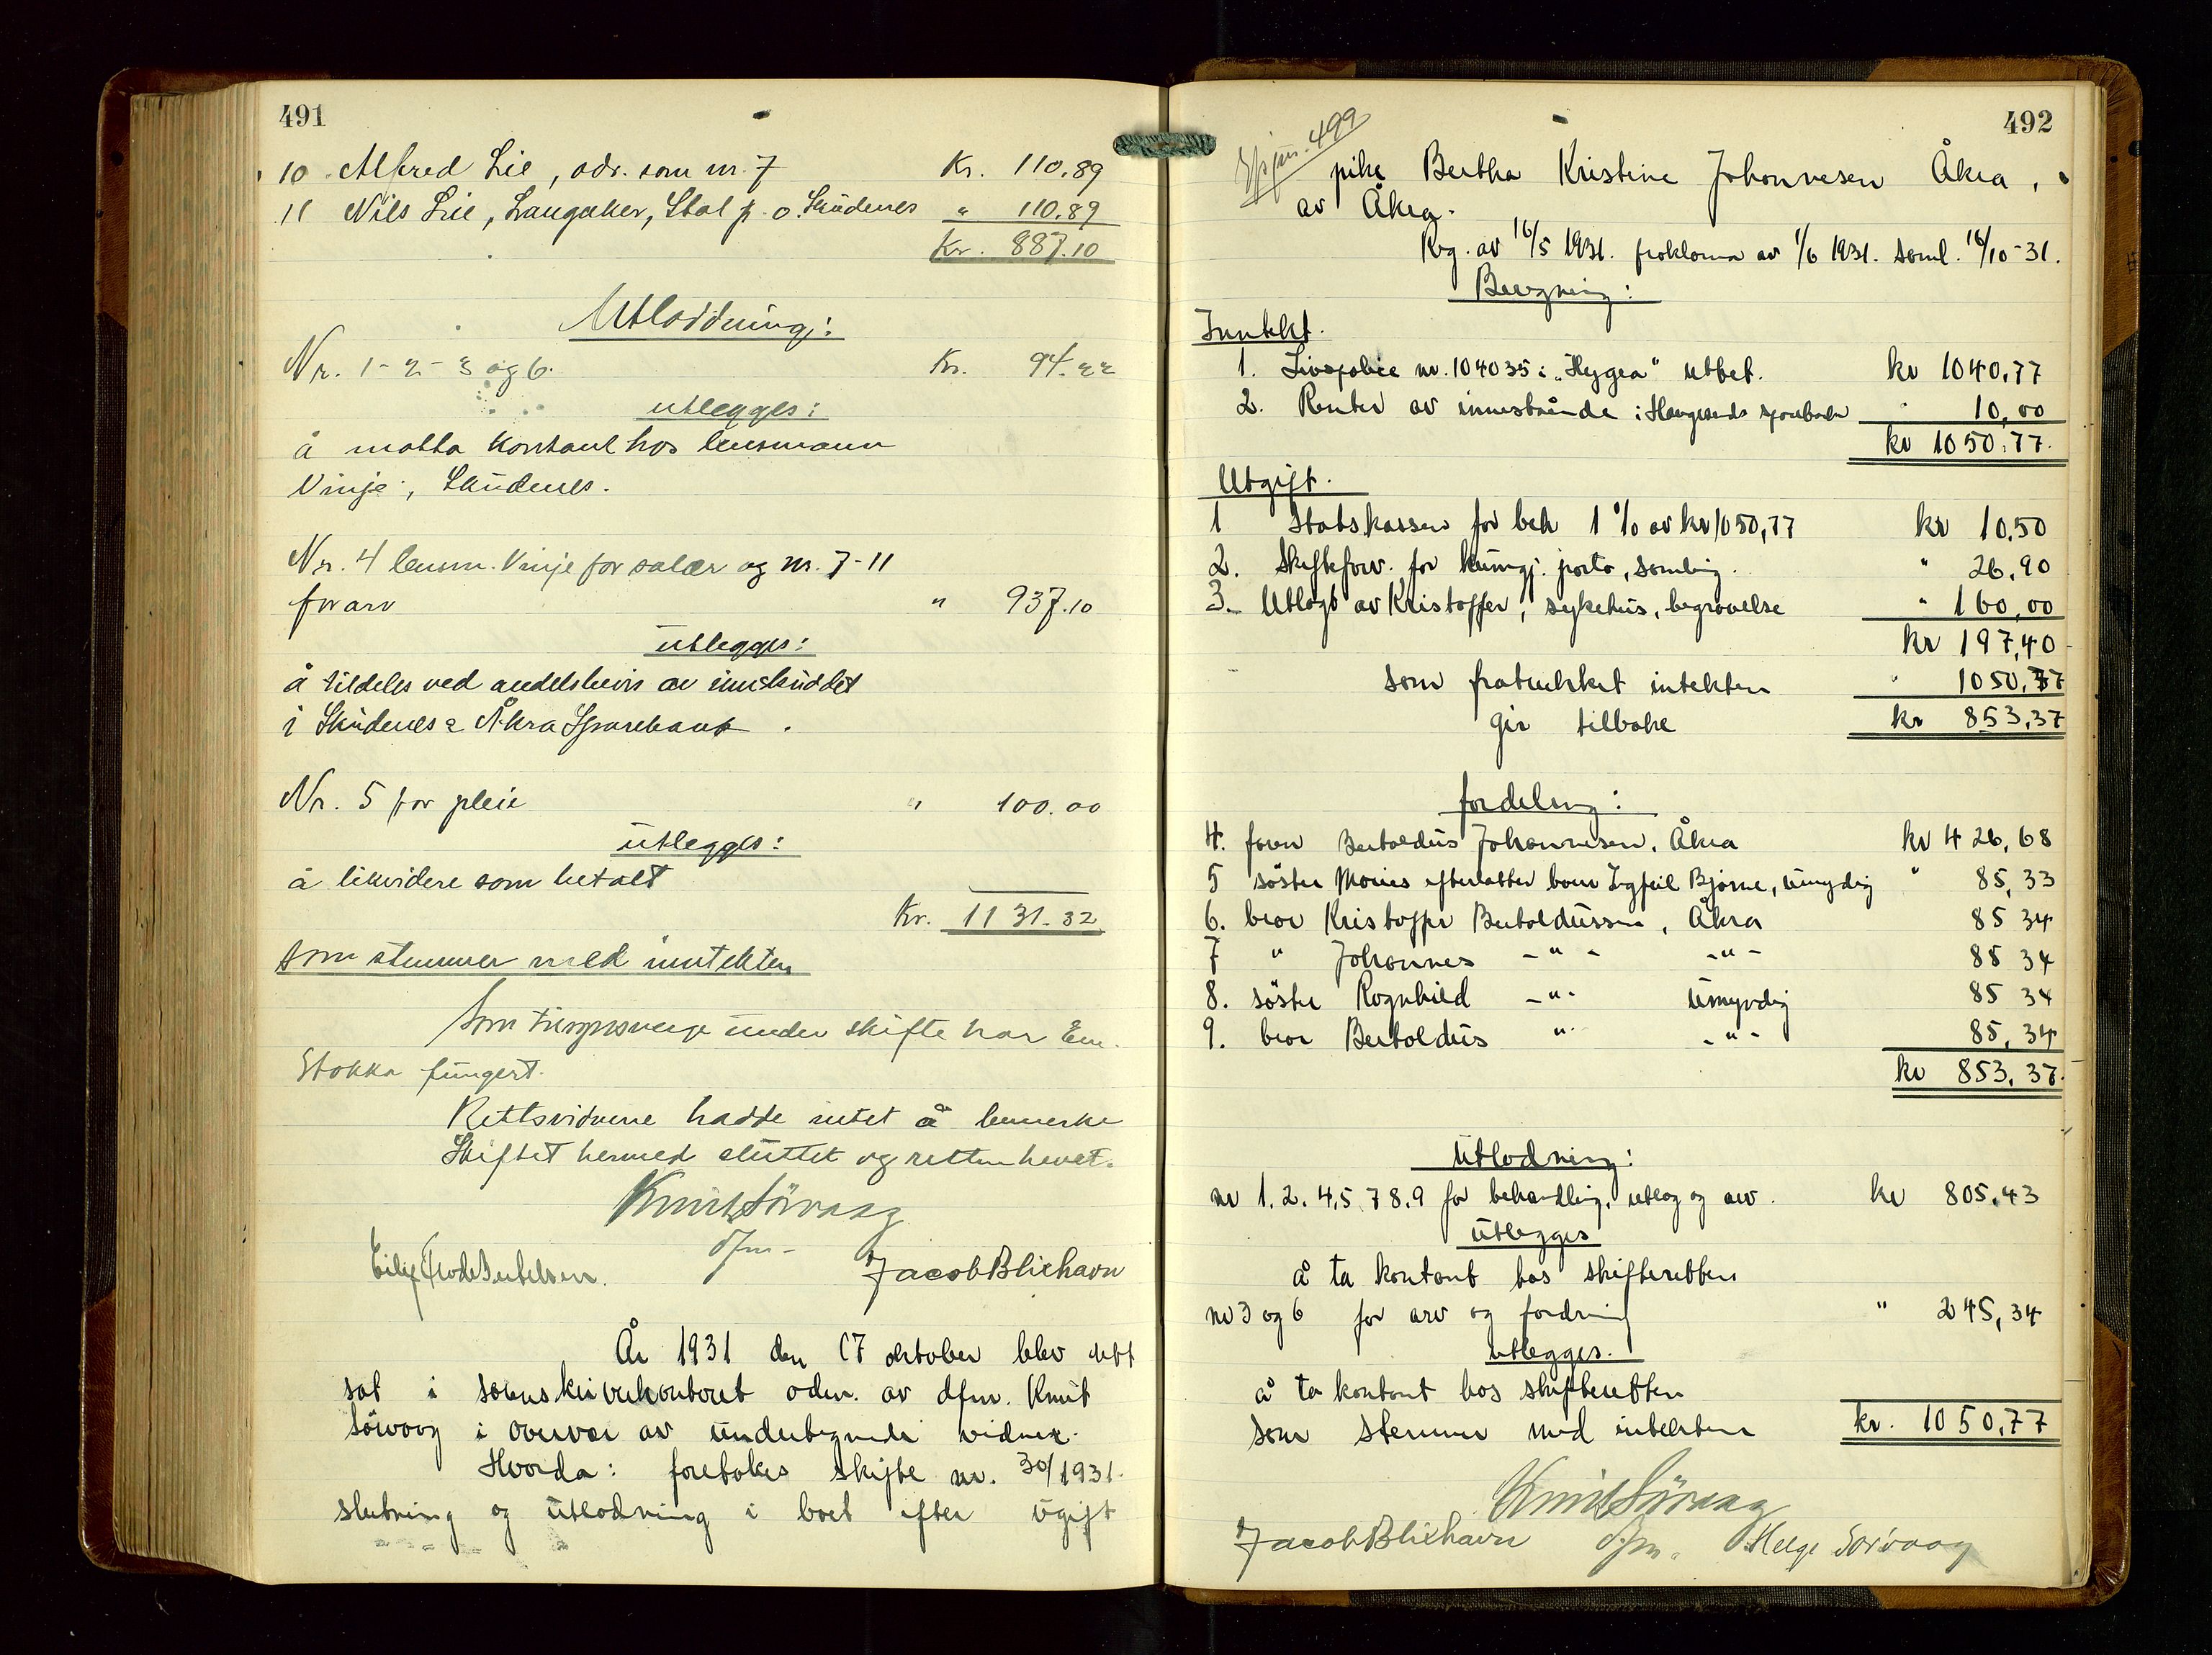 491
10 Alfred Lie, adr. som nr. 7 Kr. 110,89
11 Nils Lie, Langåker, Stol p. o. Skudenes " 110,89
Kr. 887.10
Utloddning:
Nr. 1-2-3 og 6. Kr. 94.22
utlegges:
å motta kontant hos lensmann
Vinje, Skudenes.
Nr. 4 lensm. Vinje for salær og nr. 7-11
for arv " 937.10
utlegges:
å tildeles ved andelshevis av innskuddet
i Skudenes & Åkra Sparebank.
Nr. 5 for pleie " 100.00
utlegges:
å likvidere som betalt
Kr. 1131-32
som stemmer med inntekten
Som tilsynsverge under skifte har Em.
Stokka fungert.
Rettsvidnene hadde intet å bemerke
Skiftet hermed sluttet og retten hevet.
Knut Sörvaag
dfm-
Jacob Blixhavn
År 1931 den 17 oktober blev rett
sat i sorenskriverkontoret adm. av dfm. Knut
Sörvaag i overvær av undertegnede vidner.
Hvorda: foretokes skifte nr. 30/1931.
slutning og utlodning i boet efter ugift
492
499
pike Bertha Kristine Johannesen Åkra,
av Åkra.
Reg. av 16/5 1931. proklama av 1/6 1931. saml. 16/10-31.
Beregning:
Inntekt.
1. Livspolice nr. 104035 i "Hygea" utbet. kr 1040,77
2. Renter av innestående i Haugesunds sparebank " 10,00
kr 1050,77.
Utgift.
1 Statskassen for beh 1 % av kr 1050,77 kr 10,50
2. Skifteforv. for kungj. porto, samling. " 26,90
3. Utlagt av Kristoffer, sykehus, begravelse " 160,00
kr 197,40
som fratrukket intekten " 1050,77
gir tilbake kr 853,37
fordeling:
4. faren Bertoldus Johannesen, Åkra kr 426,68
5 söster Maries efterlatte barn Ingfeil Bjørne, umyndig " 85,33
6. bror Kristoffer Bertoldussen, Åkra 85 34
7 " Johannes -"- -"- 85 34
8. söster Ragnhild -"- umyndig 85 34
9. bror Bertoldus "- -"- 85,34
kr 853,37.
Utlodning:
nr 1.2.4,5 7 8.9 for behandling, utlag og arv. kr 805.43
utlegges
å ta kontant hos skifteretten
nr 3 og 6 for arv og fordring " 245,34
utlegges.
å ta kontant hos skifteretten
som stemmer med intekten kr. 1050,77
Knut Sörvaag
Jacob Blixhavn dfm. Helge Sørvaag